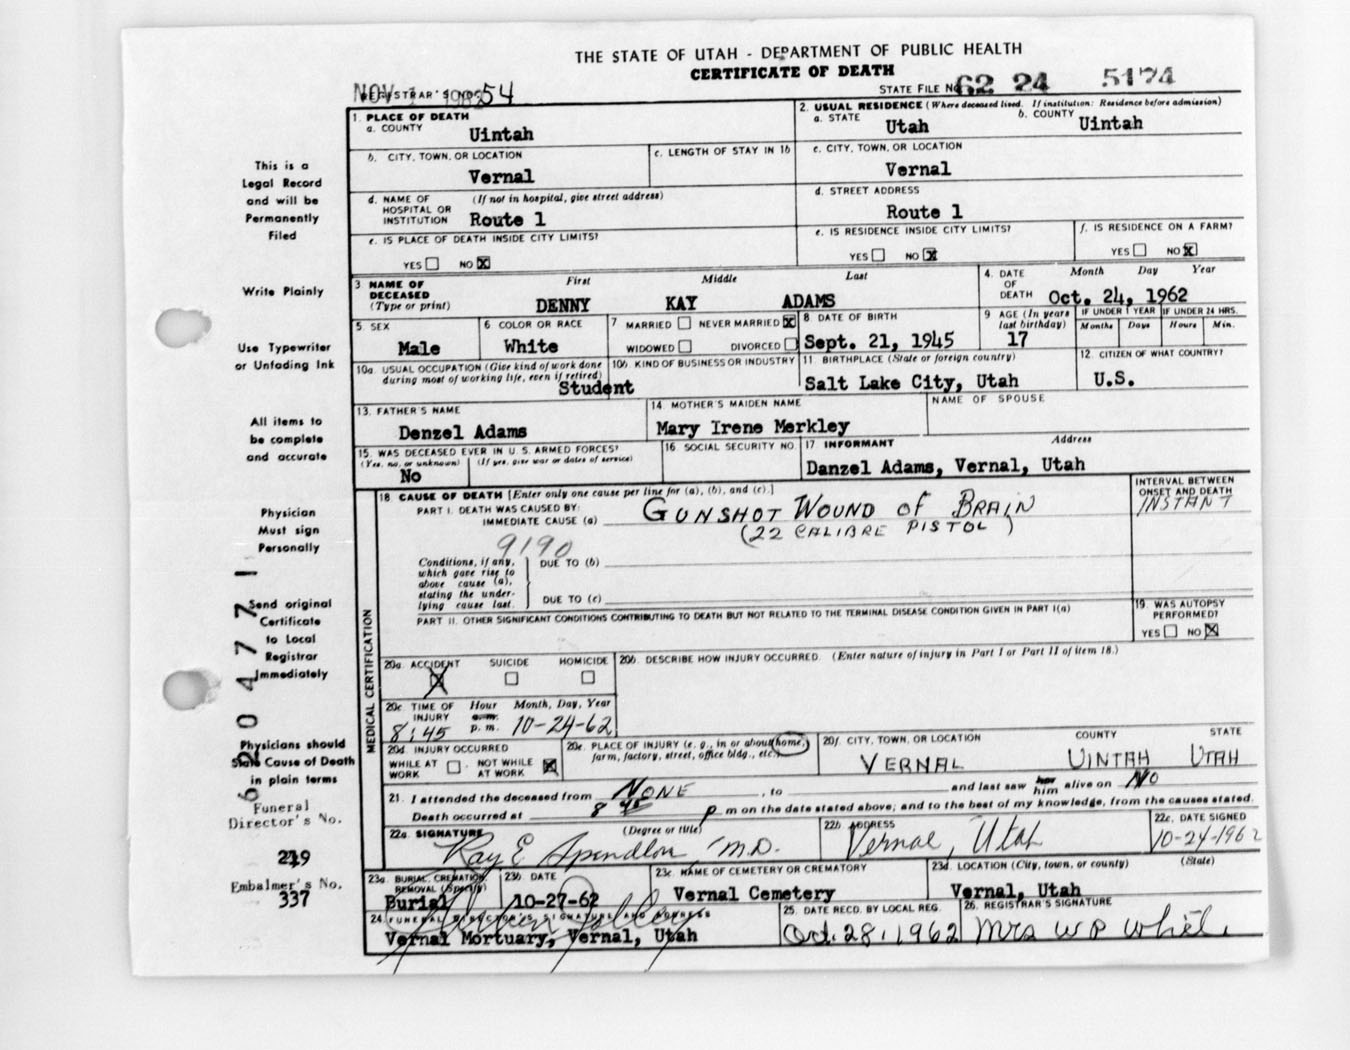 THE STATE OF UTAH - DEPARTMENT OF PUBLIC HEALTH
CERTIFICATE OF DEATH
NOV 1 1962
REGISTRAR'S NO. 54
STATE FILE NO. 62 24 5174
This is a
Legal Record
and will be
Permanently
Filed
Write Plainly
Use Typewriter
or Unfading Ink
All items to
be complete
and accurate
Physician
Must sign
Personally
Send original
Certificate
to Local
Registrar
Immediately
Physicians should
State Cause of Death
in plain terms
Funeral
Director's No.
219
Embalmer's No.
337
6204771
1. PLACE OF DEATH
a. COUNTY Uintah
2. USUAL RESIDENCE (Where deceased lived. If institution: Residence before admission)
a. STATE Utah b. COUNTY Uintah
b. CITY, TOWN, OR LOCATION Vernal
c. LENGTH OF STAY IN 1b
c. CITY, TOWN, OR LOCATION Vernal
d. NAME OF HOSPITAL OR INSTITUTION (If not in hospital, give street address) Route 1
d. STREET ADDRESS Route 1
e. IS PLACE OF DEATH INSIDE CITY LIMITS?
YES NO X
e. IS RESIDENCE INSIDE CITY LIMITS?
YES NO X
f. IS RESIDENCE ON A FARM?
YES NO X
3 NAME OF DECEASED (Type or print)
First Middle Last
DENNY KAY ADAMS
4. DATE OF DEATH Month Day Year
Oct. 24, 1962
5. SEX Male
6 COLOR OR RACE White
7 MARRIED NEVER MARRIED X
WIDOWED DIVORCED
8 DATE OF BIRTH Sept. 21, 1945
9 AGE (In years last birthday) 17
IF UNDER 1 YEAR Months Days
IF UNDER 24 HRS. Hours Min.
10a. USUAL OCCUPATION (Give kind of work done during most of working life, even if retired) Student
10b. KIND OF BUSINESS OR INDUSTRY
11. BIRTHPLACE (State or foreign country) Salt Lake City, Utah
12. CITIZEN OF WHAT COUNTRY? U.S.
13. FATHER'S NAME Denzel Adams
14. MOTHER'S MAIDEN NAME Mary Irene Merkley
NAME OF SPOUSE
15. WAS DECEASED EVER IN U.S. ARMED FORCES?
(Yes, no, or unknown) (If yes, give war or dates of service)
No
16 SOCIAL SECURITY NO.
17 INFORMANT Address
Danzel Adams, Vernal, Utah
MEDICAL CERTIFICATION
18 CAUSE OF DEATH [Enter only one cause per line for (a), (b), and (c).]
PART I. DEATH WAS CAUSED BY:
IMMEDIATE CAUSE (a) GUNSHOT WOUND OF BRAIN
(22 CALIBRE PISTOL)
INTERVAL BETWEEN ONSET AND DEATH
INSTANT
9190
Conditions, if any, which gave rise to above cause (a), stating the underlying cause last.
DUE TO (b)
DUE TO (c)
PART II. OTHER SIGNIFICANT CONDITIONS CONTRIBUTING TO DEATH BUT NOT RELATED TO THE TERMINAL DISEASE CONDITION GIVEN IN PART I(a)
19. WAS AUTOPSY PERFORMED?
YES NO X
20a. ACCIDENT X SUICIDE HOMICIDE
20b. DESCRIBE HOW INJURY OCCURRED. (Enter nature of injury in Part I or Part II of item 18.)
20c TIME OF INJURY Hour Month, Day, Year
a.m.
8:45 p.m. 10-24-62
20d. INJURY OCCURRED
WHILE AT WORK NOT WHILE AT WORK X
20e. PLACE OF INJURY (e. g., in or about home, farm, factory, street, office bldg., etc.)
20f. CITY, TOWN, OR LOCATION COUNTY STATE
VERNAL UINTAH UTAH
21. I attended the deceased from NONE, to and last saw her him alive on NO
Death occurred at 8 45 p m on the date stated above; and to the best of my knowledge, from the causes stated.
22a. SIGNATURE (Degree or title)
Ray E Spendlove, M.D.
22b ADDRESS Vernal, Utah
22c. DATE SIGNED 10-24-1962
23a. BURIAL, CREMATION REMOVAL (Specify) Burial
23b. DATE 10-27-62
23c. NAME OF CEMETERY OR CREMATORY Vernal Cemetery
23d. LOCATION (City, town, or county) (State)
Vernal, Utah
24. FUNERAL DIRECTOR'S SIGNATURE AND ADDRESS
Vernal Mortuary, Vernal, Utah
25. DATE RECD. BY LOCAL REG. Oct. 28, 1962
26. REGISTRAR'S SIGNATURE Mrs W P